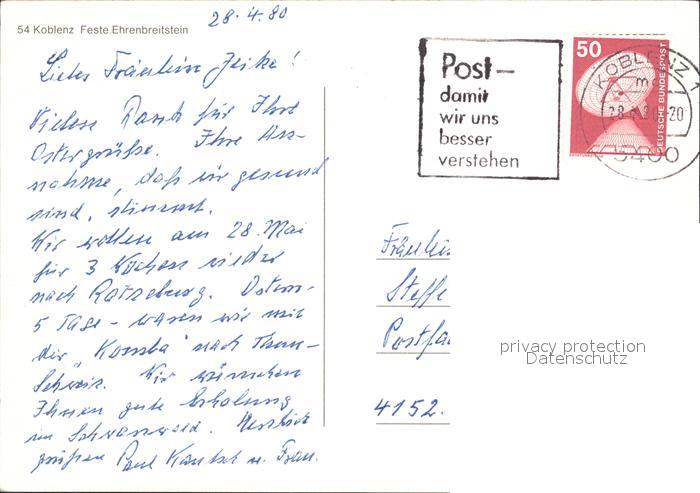 28.4.80
54 Koblenz Feste Ehrenbreitstein
Liebes Fräulein Jeike!
Vielen Dank für Ihre
Ostergrüße. Ihre An-
nahme, daß wir gesund
sind, stimmt.
Wir wollen am 28. Mai
für 3 Wochen wieder
nach Ratzeburg. Ostern-
5 Tage - waren wir mit
der "Konsba" nach Thun-
Schweiz. Wir wünschen
Ihnen gute Erholung
im Schwarzwald. Herzlich
grüßen Paul u. Frau.
Post-
damit
wir uns
besser
verstehen
50
DEUTSCHE BUNDESPOST
KOBLENZ 1
28.4.80-20
5400
Fräulein
Steffe
Postfa
4152.
privacy protection
Datenschutz